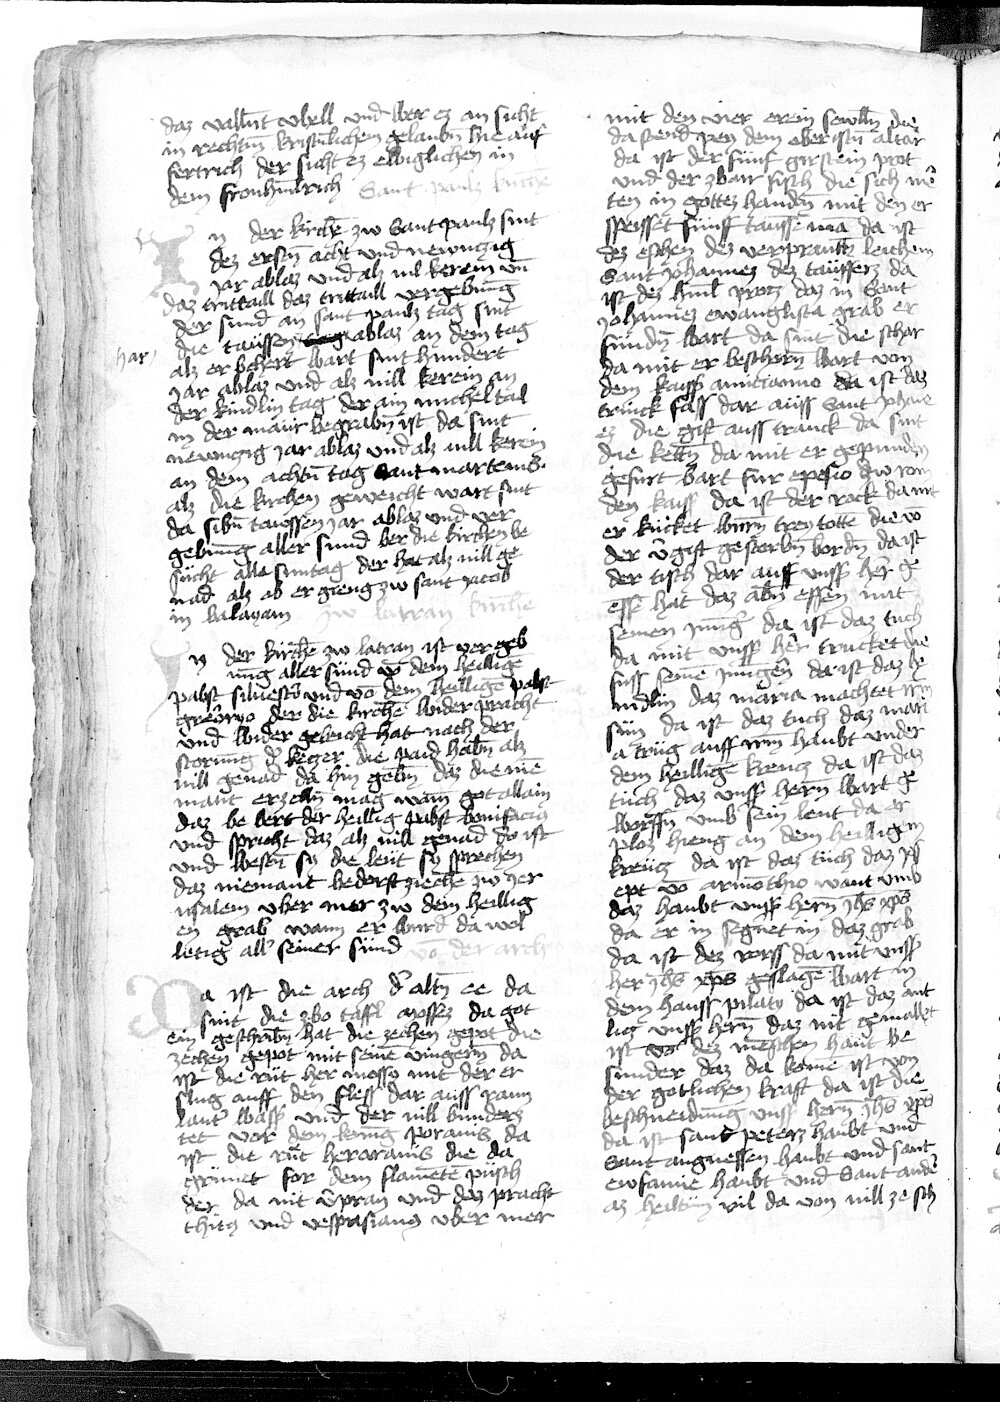 daz vallñt vbell und wer ez an sicht
in rechtm̄ kristn̄lichen gelaubn̄ hie auf
fertrich der sicht ez ebiglichen in
dem fronhimlrich Sant paulz kirche
In der kirch̄e zw Sant paulz sint
dez erstn̄ acht und newnczig
jar ablaz und alz vil kerein vn̄
daz trittaill daz trittaill vergebūng
der sund an sant paulz tag sint
die taussen ablaz an dem tag
jar
alz er bekert wart sint hundert
jar ablaz und alz vill kerein an
der kindlin tag der ain michel tail
in der maur begrabn̄ ist da sint
newnczig jar ablaz und alz vill kerein
an dem achtn̄ tag Sant marteins
alz die kirchen geweicht wart sint
da sibn̄ taussen jar ablaz und ver
gebūng aller sund wer die kirchen be
sucht alle suntag der hat alz vill ge
nad alz ob er gieng zw sant jacob
in balayam zw latran kirche
In der kirch̄e zw latran ist vergeb
ung aller sünd vō dem heillige
pabst siluestrō und vō dem heillige pabst
greōryo der die kirch̄e wider pracht
und wider geweicht hat nach der
storung d' keczer die paid habn̄ alz
vill genad da hin gebn̄ daz die nie
mant erzelln̄ mag wann got allain
daz be wert der heillig pabst bonifacius
und spricht daz alz vill genad do ist
und westn̄ sy die leut sy sprechen
daz niemant bedorft ziech̄e zw jer
usalem vber mer zw dem heillig
en grab wann er wurd da wol
ledig all' seiner sünd vō der arch
Da ist die arch d' altn̄ ee da
sint die zbo taffl' moysez da got
ein geschribn̄ hat die zechen gepot die
zechen gepot mit seine vingern da
ist die rut her moyses mit der er
slug auff den fless dar auss rann
laut' wass' und der vill wunders
tet vor dem kunig poranis da
ist die rut heraranis die da
grunet for dem flamete pusch
der da nit v̄pran und daz pracht
thitus und vespasianus vber mer
mit den vier erein sewlln̄ die
da stend pey dem oberistn̄ altar
da ist der fünf girstein prot
und der zbair fisch die sich me
ten in gottez handn̄ mit den er
speisset fünff tausse man da ist
dez eschen dez verpranttz leichem
Sant johannez dez tauffers da
ist dez himl protz daz in Sant
johannes ewanglista grab er
fundn̄ wart da sint die schar
da mit er beschorn wart von
dem kaiss' amiciomo da ist daz
trinck fass dar auss Sant johane
ez die gift auss tranck da sint
die kettn̄ da mit er gepunden
gefurt wart fur epesio zw rom
den kaiss' da ist der rock da mit
er kücket wurn trey totte die vo
der v̄gift gestorbn̄ wordn̄ da ist
der tisch dar auff uns' her ge
esse hat daz abn̄ essen mit
seinen jung' da ist daz tuch
da mit uns' her trucket die
fuss seine jungern da ist daz he
mdlin daz maria machtet irm
sun da ist daz tuch daz mari
a trug auff irm haubt under
dem heillige kreucz da ist daz
tuch daz uns' hern̄ wart ge
worffn̄ umb sein lent da er
ploz hieng an dem heilligen
kreucz da ist daz tuch daz jos
ept vo armothio want umb
daz haubt uns' hern jhs xp̄s
da er in segnet in daz grab
da ist dez rorss da mit uns'
her jhs xp̄s geslage wart in
dem hauss pilato da ist daz ant
lucz uns' hern daz nit gemallet
ist vo dez menschen hant be
sunder daz da kome ist von
der gotlichen kraft da ist die
beschneidung uns' hern jhs xp̄s
da ist sant peterz haubt und
Sant angnessen haubt und sant
ewfamie haubt und Sant andre
az heiltum vil da von vill ze sch